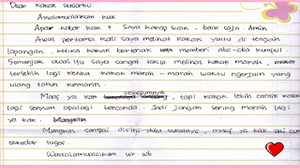 Dear kakak seniorku
Assalamualaikum kak
Apa kabar kak? Saya harap baik-baik saja Amin
Awal pertama kali saya melihat kakak yaitu di tengah
lapangan, ketika kakak berteriak memberi aba-aba kumpul.
Semenjak awal itu saya sangat takut melihat kakak marah,
terlebih lagi ketika kakak marah-marah waktu ngerjain yang
ulang tahun kemarin.
Maaf ya kak sebelumnya, tapi kakak lebih cantik kalau
lagi senyum apalagi bercanda. Jadi jangan sering marah lagi
ya kak.
Mungkin sampai disini dulu suratnya, maaf ya kak ini cuma
sekedar tugas.
Wassalamualaikum wr. wb